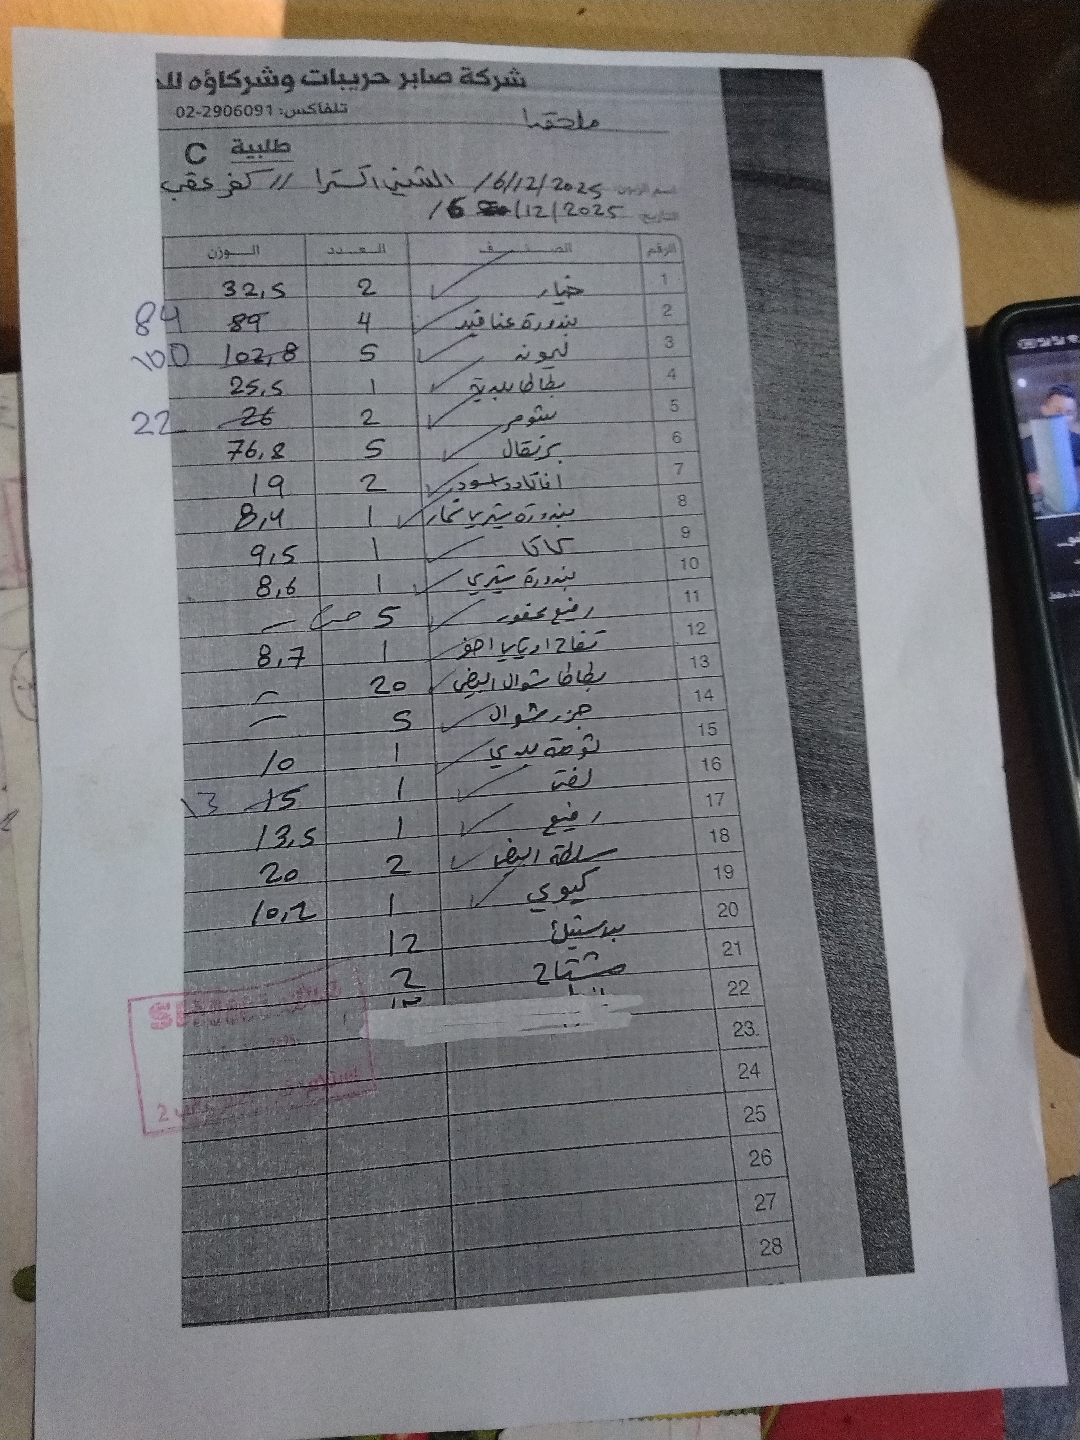 شركة صابر حريبات وشركاؤه
تلفاكس: 02-2906091
ملحقنا
طلبية C
16/12/2025 الشني اكسترا // كفر عقب
التاريخ 16/12/2025
الرقم الصنف العدد الوزن
1 خيار 2 32,5
2 بندورة عناقيد 4 89 84
3 ليمونه 5 102,8 100
4 بطاطا بلدية 1 25,5
5 ثوم 2 26 22
6 برتقال 5 76,8
7 افاكادو اسود 2 19
8 بندورة شيري 1 8,4
9 كاكا 1 9,5
10 بندورة شيري 1 8,6
11 رفيع 5 –
12 تفاح 1 8,7
13 بطاطا شوال ابيض 20 –
14 جزر شوال 5 –
15 بلدي 1 10
16 لفت 1 15 13
17 رفيع 1 13,5
18 سلطة ابيض 2 20
19 كيوي 1 10,2
20 12
21 مشتاح 2
22
23
24
25
26
27
28